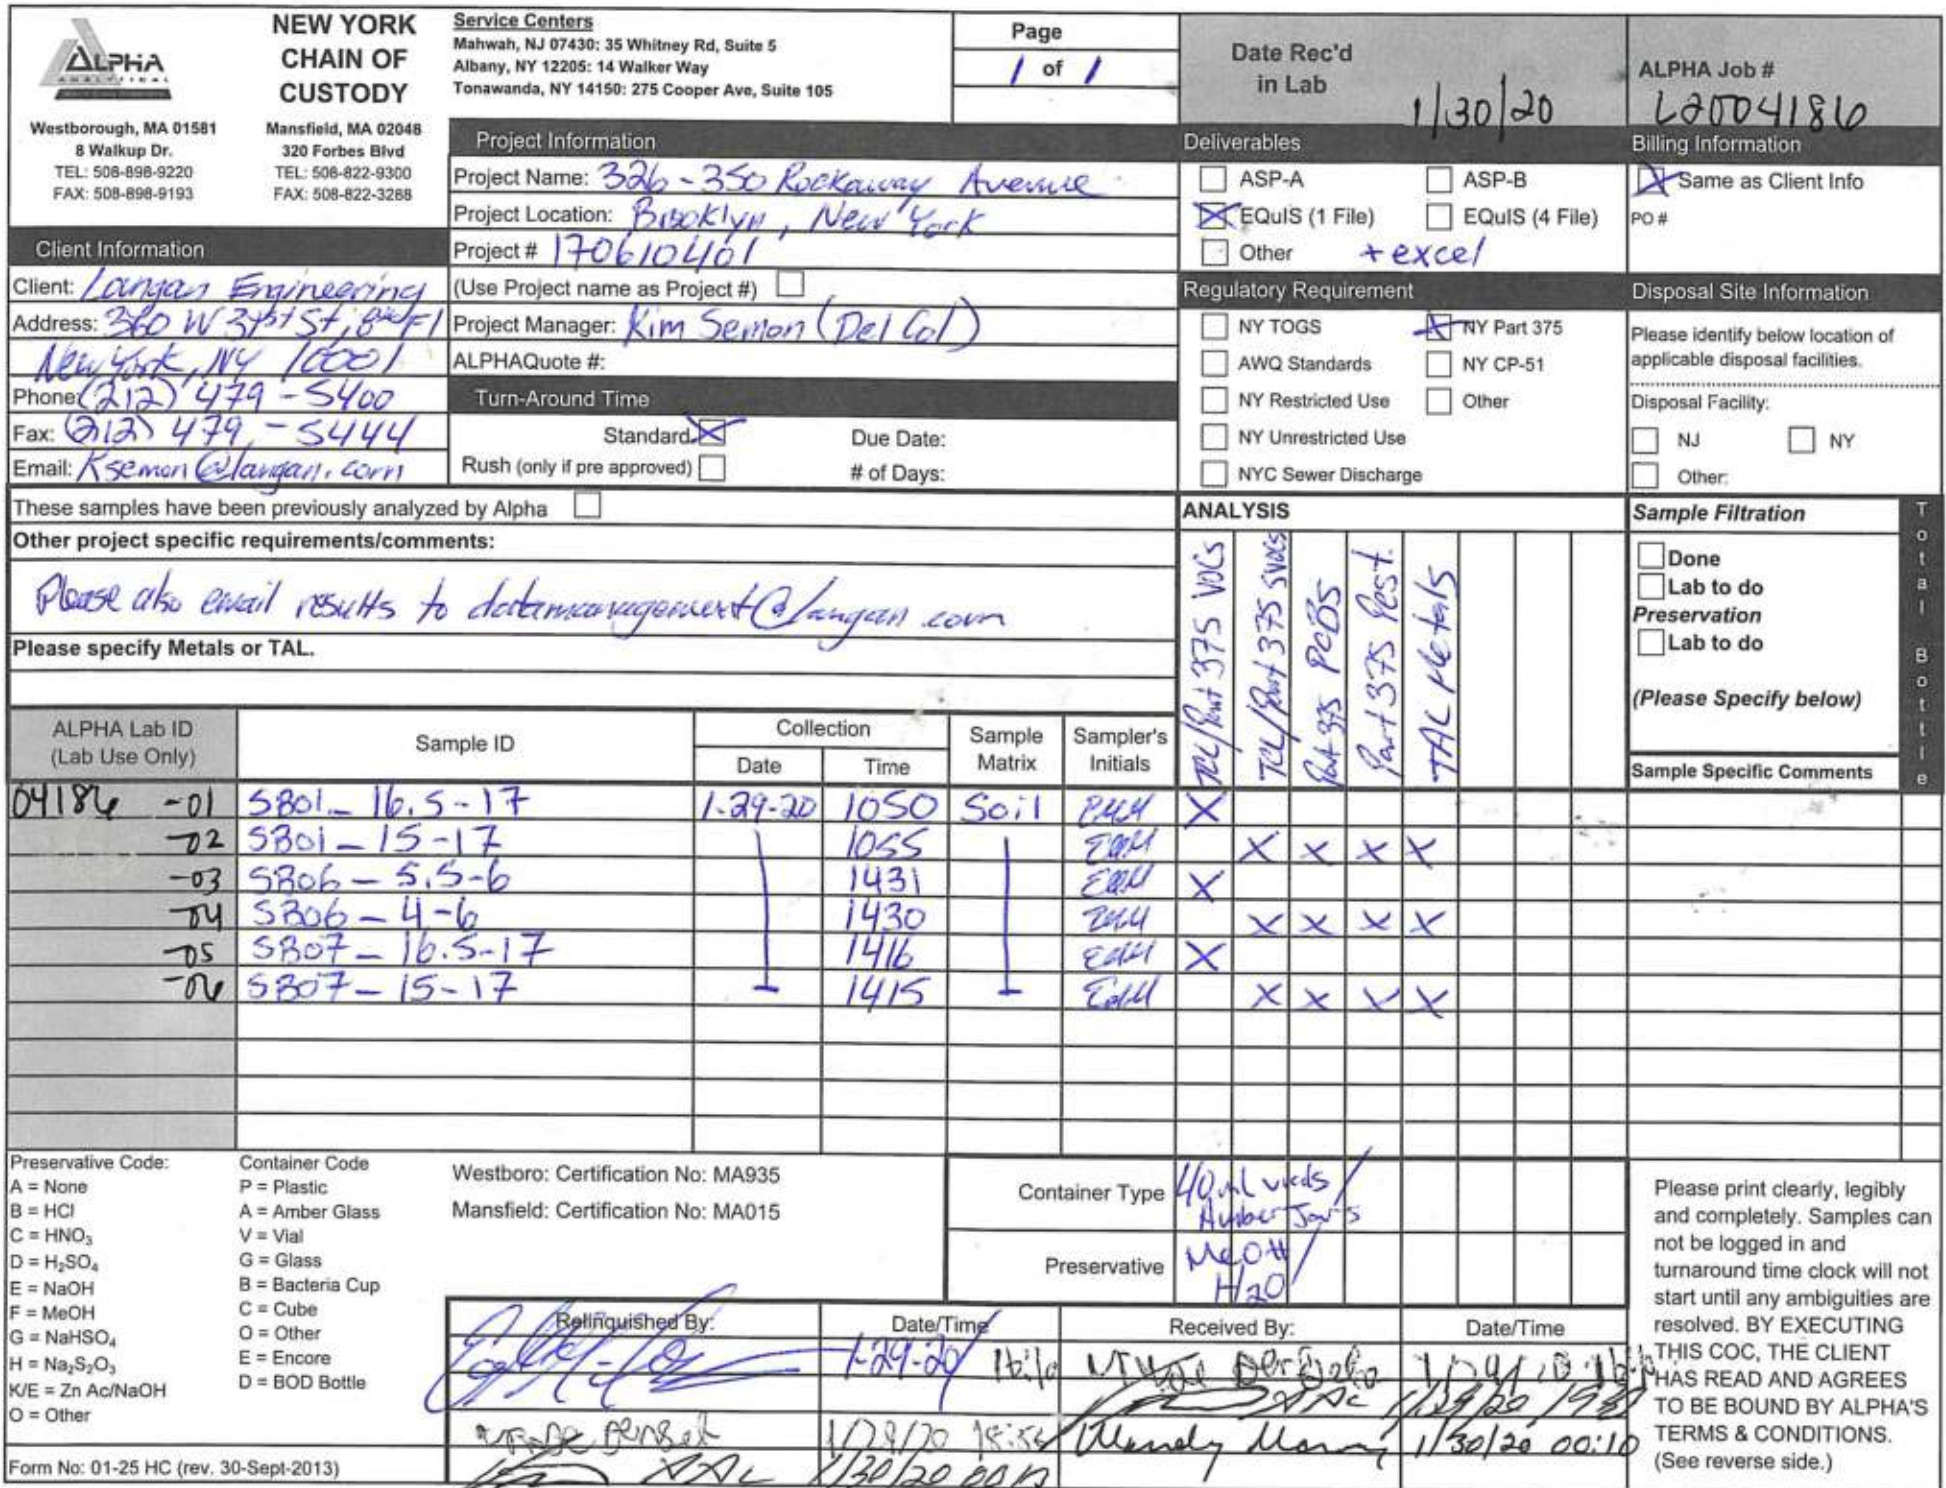 ALPHA
ANALYTICAL
NEW YORK
CHAIN OF
CUSTODY
Westborough, MA 01581
8 Walkup Dr.
TEL: 508-898-9220
FAX: 508-898-9193
Mansfield, MA 02048
320 Forbes Blvd
TEL: 508-822-9300
FAX: 508-822-3288
Service Centers
Mahwah, NJ 07430: 35 Whitney Rd, Suite 5
Albany, NY 12205: 14 Walker Way
Tonawanda, NY 14150: 275 Cooper Ave, Suite 105
Page
1 of 1
Date Rec'd
in Lab
1/30/20
ALPHA Job #
L2004186
Project Information
Project Name: 326-350 Rockaway Avenue
Project Location: Brooklyn, New York
Project # 170610401
(Use Project name as Project #)
Project Manager: Kim Semon (Del Col)
ALPHAQuote #:
Deliverables
ASP-A ASP-B
EQuIS (1 File) EQuIS (4 File)
Other + excel
Billing Information
Same as Client Info
PO #
Client Information
Client: Langan Engineering
Address: 360 W 31st St, 8th Fl
New York, NY 10001
Phone: (212) 479-5400
Fax: (212) 479-5444
Email: Ksemon@langan.com
Turn-Around Time
Standard Due Date:
Rush (only if pre approved) # of Days:
Regulatory Requirement
NY TOGS NY Part 375
AWQ Standards NY CP-51
NY Restricted Use Other
NY Unrestricted Use
NYC Sewer Discharge
Disposal Site Information
Please identify below location of
applicable disposal facilities.
Disposal Facility:
NJ NY
Other:
These samples have been previously analyzed by Alpha
Other project specific requirements/comments:
Please also email results to datamanagement@langan.com
Please specify Metals or TAL.
ANALYSIS
TCL/Part 375 VOCs
TCL/Part 375 SVOCs
Part 375 PCBs
Part 375 Pest.
TAL Metals
Sample Filtration
Done
Lab to do
Preservation
Lab to do
(Please Specify below)
Sample Specific Comments
Total Bottle
ALPHA Lab ID
(Lab Use Only)
Sample ID
Collection
Date Time
Sample
Matrix
Sampler's
Initials
04186 -01 SB01_16.5-17 1-29-20 1050 Soil X
-02 SB01_15-17 1055 X X X X
-03 SB06_5.5-6 1431 X
-04 SB06_4-6 1430 X X X X
-05 SB07_16.5-17 1416 X
-06 SB07_15-17 1415 X X X X
Preservative Code:
A = None
B = HCl
C = HNO₃
D = H₂SO₄
E = NaOH
F = MeOH
G = NaHSO₄
H = Na₂S₂O₃
K/E = Zn Ac/NaOH
O = Other
Container Code
P = Plastic
A = Amber Glass
V = Vial
G = Glass
B = Bacteria Cup
C = Cube
O = Other
E = Encore
D = BOD Bottle
Westboro: Certification No: MA935
Mansfield: Certification No: MA015
Container Type 40ml vials/
Amber Jars
Preservative MeOH/
H2O
Relinquished By: Date/Time Received By: Date/Time
1-29-20/
AAL 1/29/20
1/29/20 18:54 1/30/20 00:10
AAL 1/30/20
Please print clearly, legibly
and completely. Samples can
not be logged in and
turnaround time clock will not
start until any ambiguities are
resolved. BY EXECUTING
THIS COC, THE CLIENT
HAS READ AND AGREES
TO BE BOUND BY ALPHA'S
TERMS & CONDITIONS.
(See reverse side.)
Form No: 01-25 HC (rev. 30-Sept-2013)